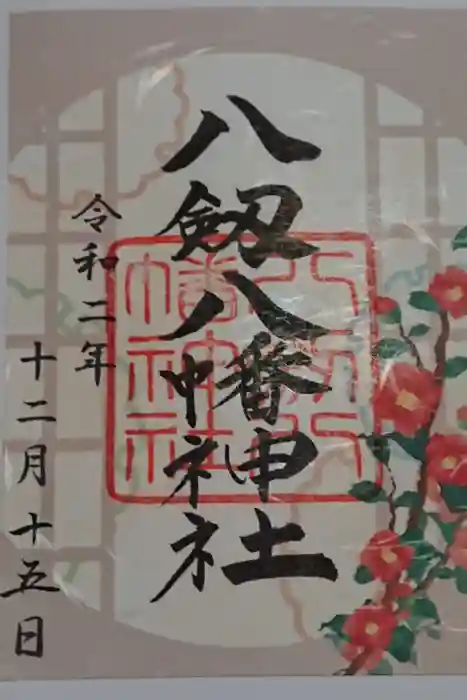 八劔八幡神社
令和二年
十二月十五日
八剱八
幡神社